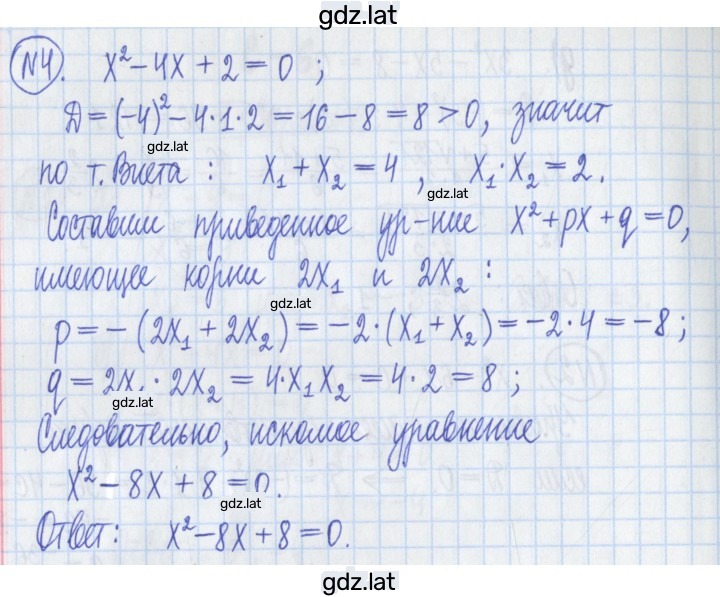 gdz.lat
№4. x² - 4x + 2 = 0 ;
Д = (-4)² - 4·1·2 = 16 - 8 = 8 > 0, значит
gdz.lat
по т. Виета : x₁ + x₂ = 4 , x₁·x₂ = 2.
gdz.lat
Составим приведенное ур-ние x² + px + q = 0,
имеющее корни 2x₁ и 2x₂ :
gdz.lat
p = - (2x₁ + 2x₂) = -2·(x₁ + x₂) = -2·4 = -8 ;
q = 2x₁·2x₂ = 4·x₁x₂ = 4·2 = 8 ;
gdz.lat
Следовательно, искомое уравнение
x² - 8x + 8 = 0.
gdz.lat
Ответ: x² - 8x + 8 = 0.
gdz.lat
gdz.lat